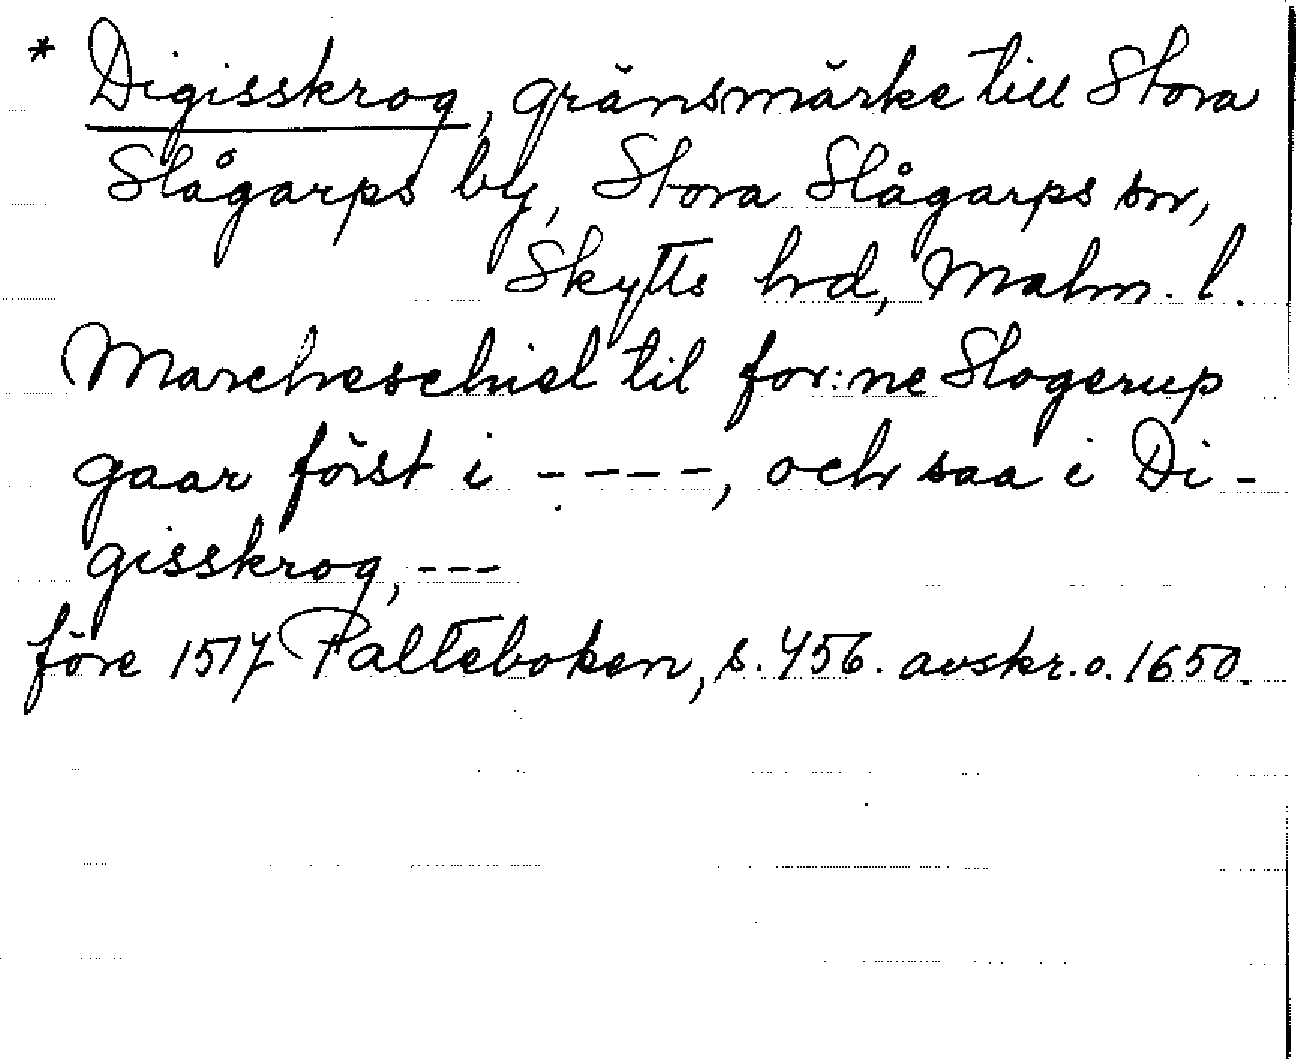 * Digisskrog, gränsmärke till Stora
Slågarps by, Stora Slågarps sn,
Skytts hrd, Malm. l.
Marcheschiel til for:ne Slogerup
gaar först i ----, och saa i Di-
gisskrog, ---
före 1517 Palteboken, s. 456. avskr. o. 1650.